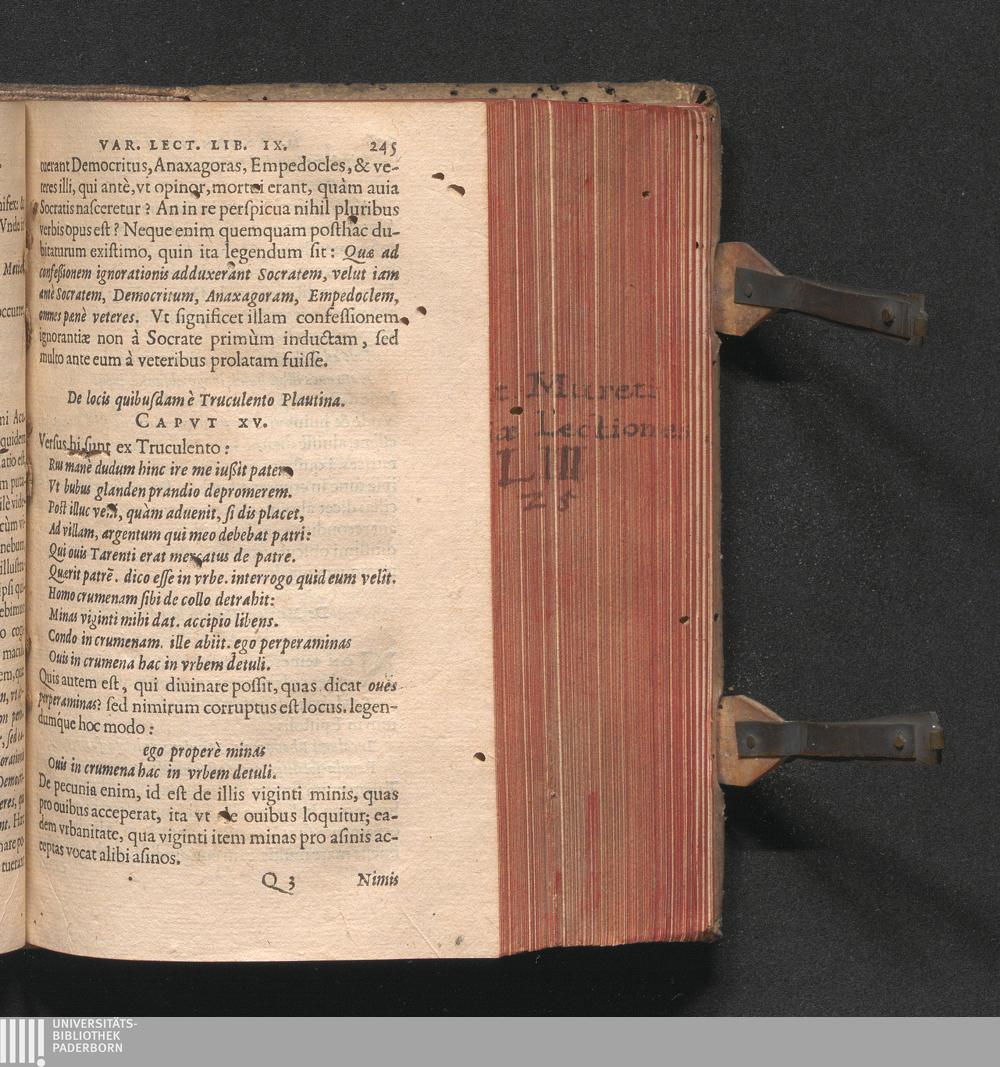 VAR. LECT. LIB. IX. 245
tuerant Democritus, Anaxagoras, Empedocles, & ve-
teres illi, qui antè, vt opinor, mortui erant, quàm auia
Socratis nasceretur? An in re perspicua nihil pluribus
verbis opus est? Neque enim quemquam posthac du-
bitaturum existimo, quin ita legendum sit: Quæ ad
confessionem ignorationis adduxerant Socratem, velut iam
antè Socratem, Democritum, Anaxagoram, Empedoclem,
omnes pænè veteres. Vt significet illam confessionem
ignorantiæ non à Socrate primùm inductam, sed
multo ante eum à veteribus prolatam fuisse.
De locis quibusdam è Truculento Plautina.
CAPVT XV.
Versus hi sunt ex Truculento:
Rus manè dudum hinc ire me iußit pater
Vt bubus glanden prandio depromerem.
Post illuc veni, quàm aduenit, si dis placet,
Ad villam, argentum qui meo debebat patri:
Qui ouis Tarenti erat mercatus de patre.
Quærit patrē. dico esse in vrbe. interrogo quid eum velit.
Homo crumenam sibi de collo detrahit:
Minas viginti mihi dat. accipio libens.
Condo in crumenam. ille abiit. ego perperaminas
Ouis in crumena hac in vrbem detuli.
Quis autem est, qui diuinare possit, quas dicat oues
perperaminas? sed nimirum corruptus est locus. legen-
dumque hoc modo:
ego properè minas
Ouis in crumena hac in vrbem detuli.
De pecunia enim, id est de illis viginti minis, quas
pro ouibus acceperat, ita vt de ouibus loquitur; ea-
dem vrbanitate, qua viginti item minas pro asinis ac-
ceptas vocat alibi asinos.
Q 3 Nimis
t Mureti
æ Lectiones
LIII
25
UNIVERSITÄTS-
BIBLIOTHEK
PADERBORN